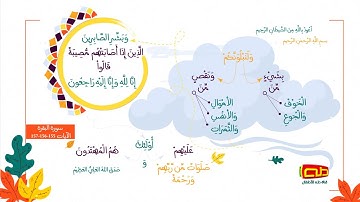 أعوذ بالله من الشيطان الرجيم
بسم الله الرحمن الرحيم
وَلَنَبْلُوَنَّكُمْ
بِشَيْءٍ
مِّنَ
الْخَوْفِ
وَالْجُوعِ
وَنَقْصٍ
مِّنَ
الْأَمْوَالِ
وَالْأَنفُسِ
وَالثَّمَرَاتِ
وَبَشِّرِ الصَّابِرِينَ
الَّذِينَ إِذَا أَصَابَتْهُم مُّصِيبَةٌ
قَالُوا
إِنَّا لِلَّهِ وَإِنَّا إِلَيْهِ رَاجِعُونَ
سورة البقرة
الآيات: 155-156-157
أُولَٰئِكَ
عَلَيْهِمْ
صَلَوَاتٌ مِّن رَّبِّهِمْ
وَرَحْمَةٌ
وَ
هُمُ الْمُهْتَدُونَ
صَدَقَ اللهُ العَلِيُّ العَظِيمُ
طه
قناة طه للأطفال